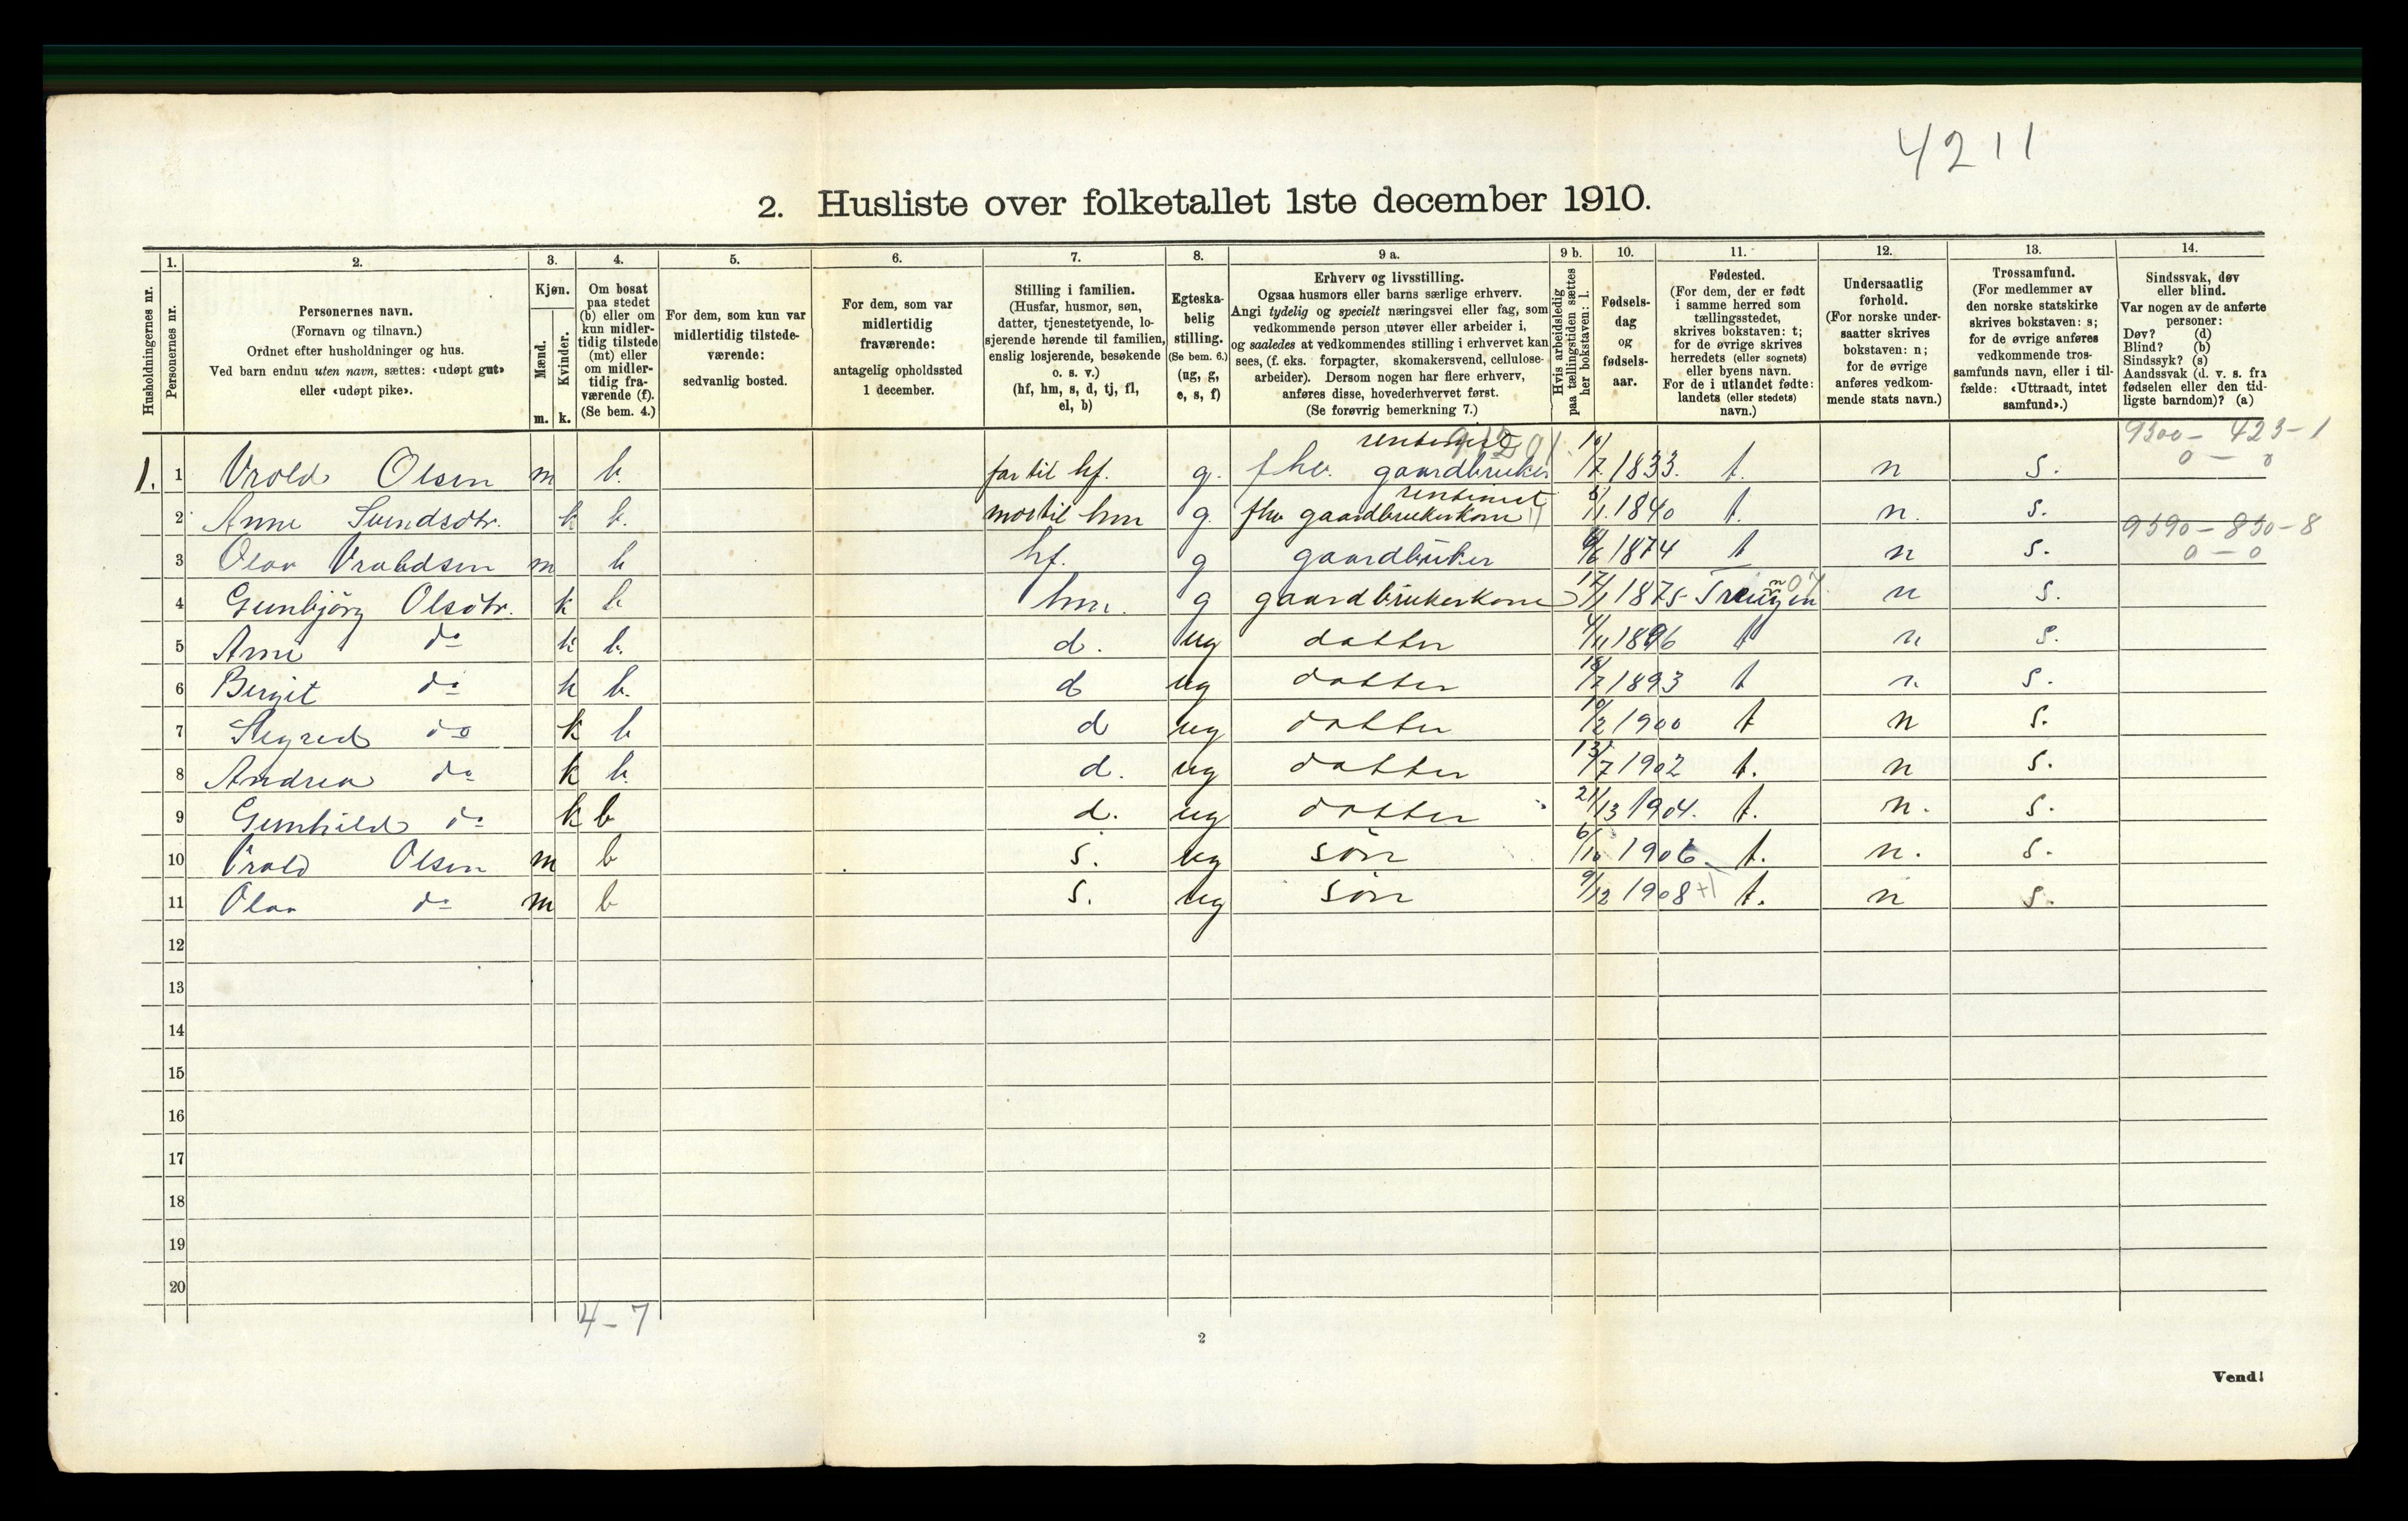 4211
2. Husliste over folketallet 1ste december 1910.
Husholdningernes nr.
1.
Personernes nr.
2.
Personernes navn.
(Fornavn og tilnavn.)
Ordnet efter husholdninger og hus.
Ved barn endnu uten navn, sættes: «udøpt gut»
eller «udøpt pike».
3.
Kjøn.
Mænd.
Kvinder.
m. k.
4.
Om bosat
paa stedet
(b) eller om
kun midler-
tidig tilstede
(mt) eller
om midler-
tidig fra-
værende (f).
(Se bem. 4.)
5.
For dem, som kun var
midlertidig tilstede-
værende:
sedvanlig bosted.
6.
For dem, som var
midlertidig
fraværende:
antagelig opholdssted
1 december.
7.
Stilling i familien.
(Husfar, husmor, søn,
datter, tjenestetyende, lo-
sjerende hørende til familien,
enslig losjerende, besøkende
o. s. v.)
(hf, hm, s, d, tj, fl,
el, b)
8.
Egteska-
belig
stilling.
(Se bem. 6.)
(ug, g,
e, s, f)
9 a.
Erhverv og livsstilling.
Ogsaa husmors eller barns særlige erhverv.
Angi tydelig og specielt næringsvei eller fag, som
vedkommende person utøver eller arbeider i,
og saaledes at vedkommendes stilling i erhvervet kan
sees, (f. eks. forpagter, skomakersvend, cellulose-
arbeider). Dersom nogen har flere erhverv,
anføres disse, hovederhvervet først.
(Se forøvrig bemerkning 7.)
9 b.
Hvis arbeidsledig
paa tællingstiden sættes
her bokstaven: l.
10.
Fødsels-
dag
og
fødsels-
aar.
11.
Fødested.
(For dem, der er født
i samme herred som
tællingsstedet,
skrives bokstaven: t;
for de øvrige skrives
herredets (eller sognets)
eller byens navn.
For de i utlandet fødte:
landets (eller stedets)
navn.)
12.
Undersaatlig
forhold.
(For norske under-
saatter skrives
bokstaven: n;
for de øvrige
anføres vedkom-
mende stats navn.)
13.
Trossamfund.
(For medlemmer av
den norske statskirke
skrives bokstaven: s;
for de øvrige anføres
vedkommende tros-
samfunds navn, eller i til-
fælde: «Uttraadt, intet
samfund».)
14.
Sindssvak, døv
eller blind.
Var nogen av de anførte
personer:
Døv? (d)
Blind? (b)
Sindssyk? (s)
Aandssvak (d. v. s. fra
fødselen eller den tid-
ligste barndom)? (a)
9300 - 423-1
0 - 0
1. 1 Vrold Olsen m b. far til hf. g. fhv. gaardbruker 1833. t. n s.
2 Anne Svendsdtr. k b. mor til hm g. fhv gaardbrukerkone 1/1. 1840 t. n. s.
9590 - 850-8
0 - 0
3 Olav Vraldsen m b hf. g gaardbruker 1874 t n s.
4 Gunbjörg Olsdtr. k b hm. g gaardbrukerkone 17/1 1875 n s.
5 Anne do k b. d. ug datter 4/11 1896 t n s.
6 Bergit do k b. d ug datter 18/7 1893 t n s.
7 Sigred do k b d ug datter 1900 t n s.
8 Andrea do k b. d. ug datter 13/7 1902 t. n s.
9 Gunhild do k b d. ug datter 1904. t. n. s.
10 Vrold Olsen m b s. ug søn 6/10 1906. t. n. s.
11 Olav do m b s. ug søn 9/12 1908 +1 t. n s.
12
13
14
15
16
17
18
19
20
4-7
2
Vend!